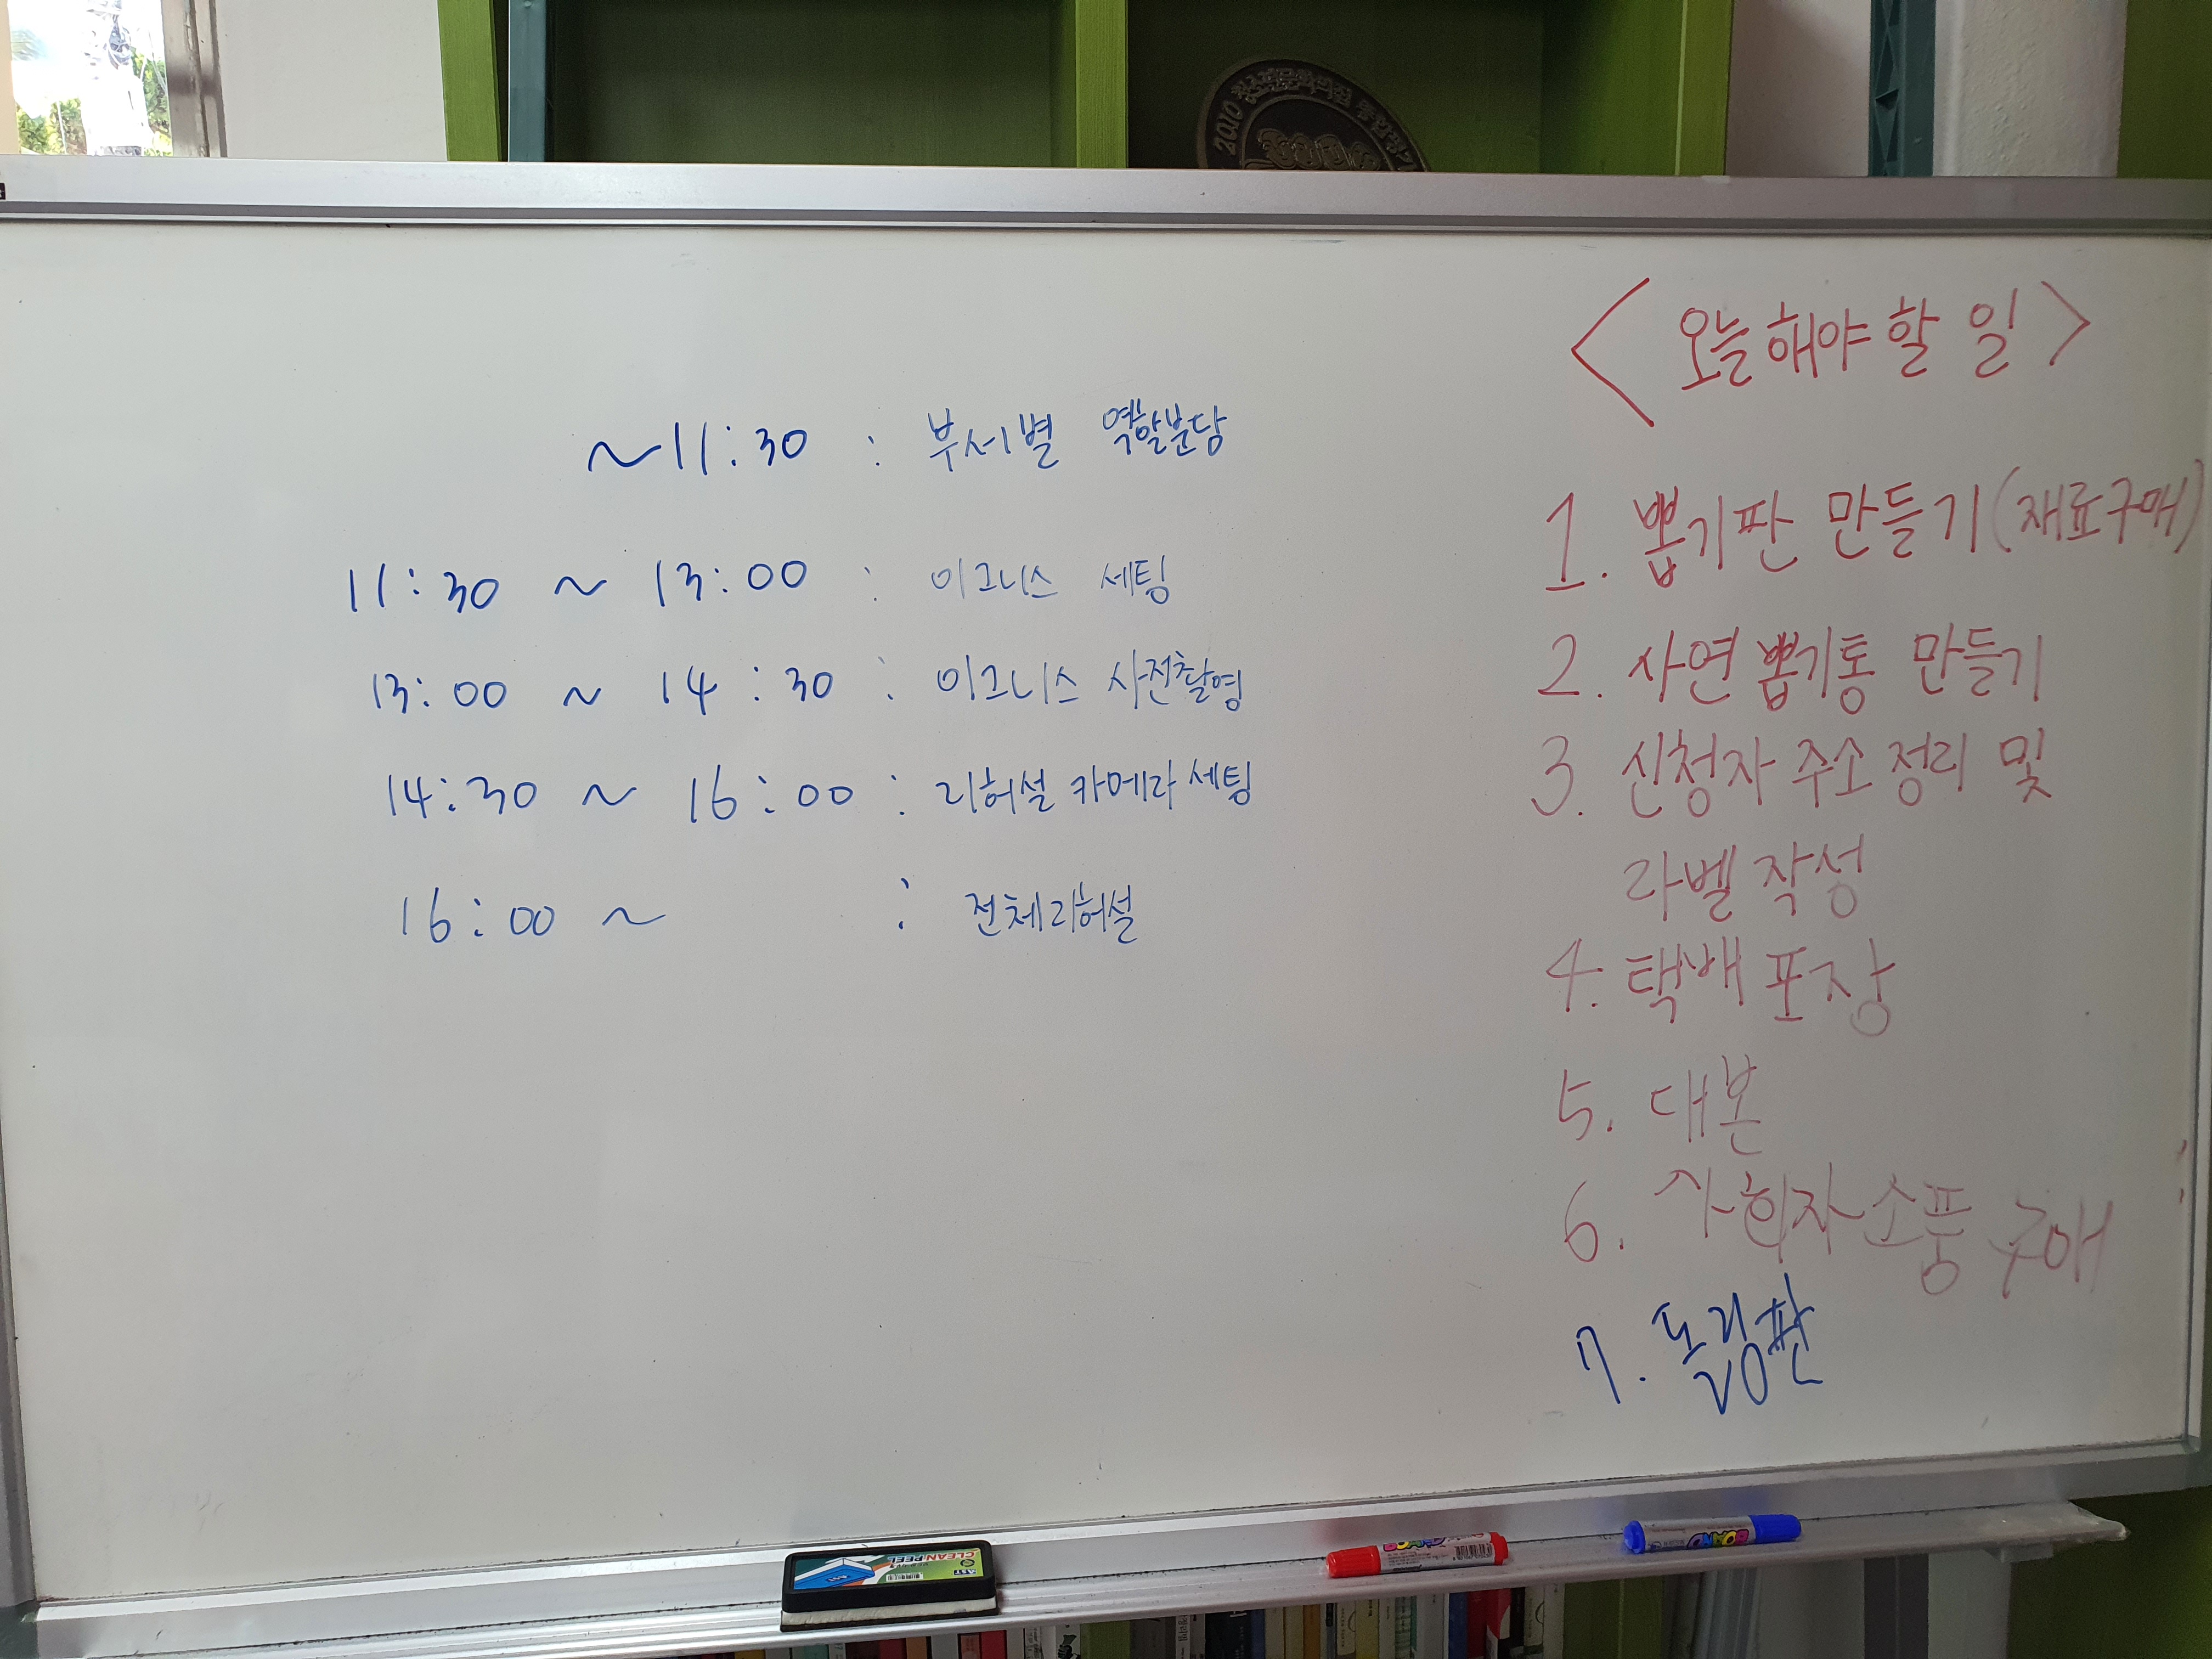 2010
~11:30 : 부서별 역할분담
11:30 ~ 13:00 : 이그니스 세팅
13:00 ~ 14:30 : 이그니스 사전촬영
14:30 ~ 16:00 : 리허설 카메라 세팅
16:00 ~ : 전체리허설
<오늘 해야 할 일>
1. 뽑기판 만들기(재료구매)
2. 사연 뽑기통 만들기
3. 신청자 주소 정리 및
라벨 작성
4. 택배 포장
5. 대본
6. 사회자 소품 구매
7. 돌림판
CLEAN PEEL
BOARD